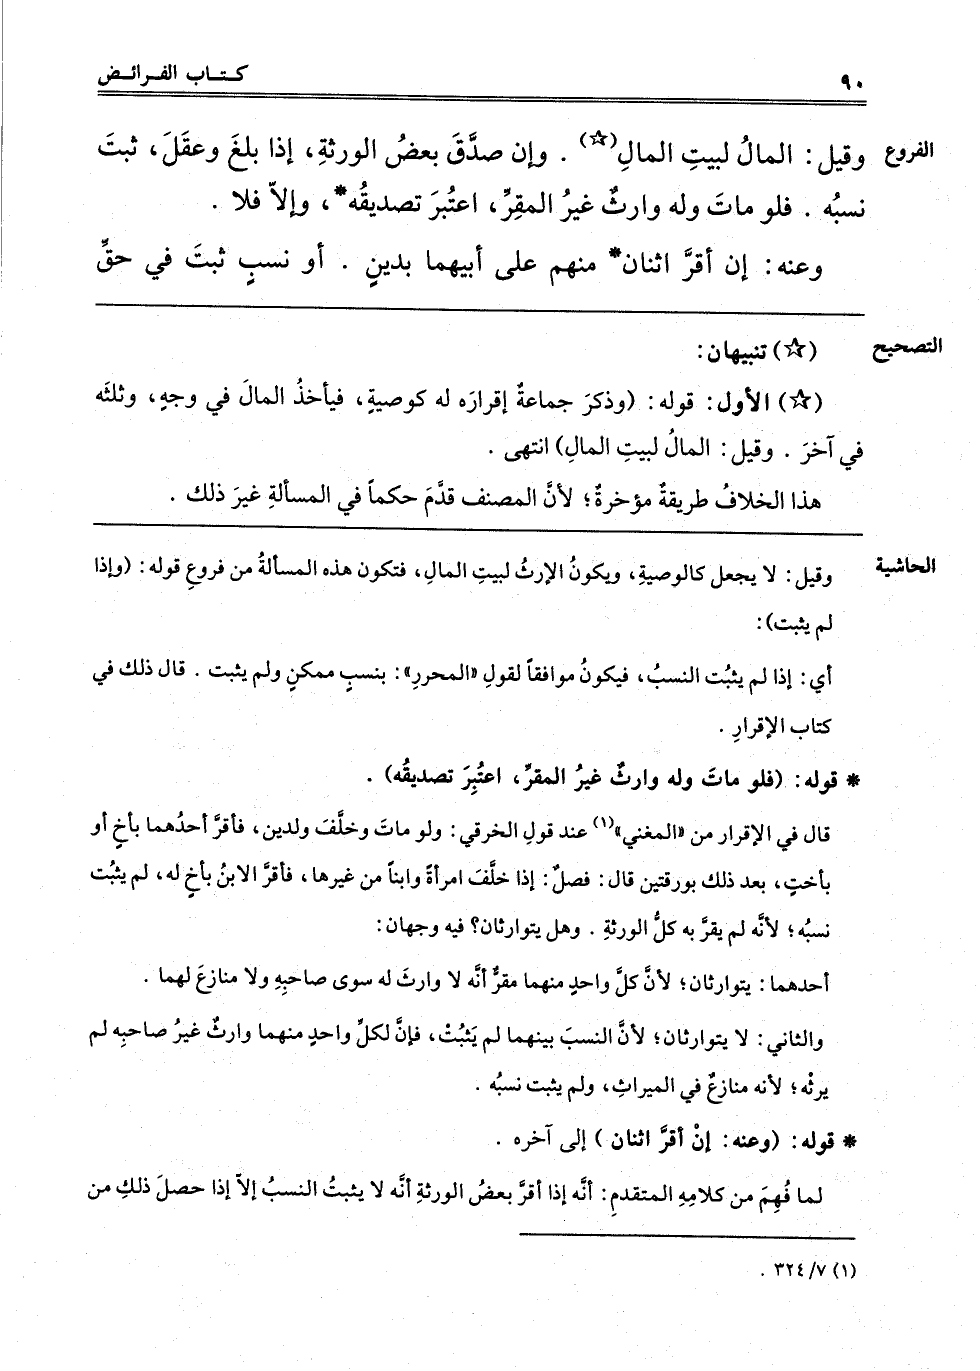 ٩٠
كتاب الفرائض
الفروع
وقيل: المالُ لبيتِ المالِ(☆). وإن صدَّقَ بعضُ الورثةِ، إذا بلغَ وعقَلَ، ثبتَ
نسبُه. فلو ماتَ وله وارثٌ غيرُ المقِرِّ، اعتُبرَ تصديقُه*، وإلاّ فلا.
وعنه: إن أقرَّ اثنان* منهم على أبيهما بدينٍ. أو نسبٍ ثبتَ في حقِّ
التصحيح
(☆) تنبيهان:
(☆) الأول: قوله: (وذكرَ جماعةٌ إقرارَه له كوصيةٍ، فيأخذُ المالَ في وجهٍ، وثلثَه
في آخرَ. وقيل: المالُ لبيتِ المالِ) انتهى.
هذا الخلافُ طريقةٌ مؤخرةٌ؛ لأنَّ المصنف قدَّمَ حكماً في المسألةِ غيرَ ذلك.
الحاشية
وقيل: لا يجعل كالوصيةِ، ويكونُ الإرثُ لبيتِ المالِ، فتكون هذه المسألةُ من فروعِ قوله: (وإذا
لم يثبت):
أي: إذا لم يثبُت النسبُ، فيكونُ موافقاً لقولِ «المحررِ»: بنسبٍ ممكنٍ ولم يثبت. قال ذلك في
كتاب الإقرارِ.
* قوله: (فلو ماتَ وله وارثٌ غيرُ المقرِّ، اعتُبِرَ تصديقُه).
قال في الإقرار من «المغني»(١) عند قولِ الخرقي: ولو ماتَ وخلَّفَ ولدين، فأقرَّ أحدُهما بأخٍ أو
بأختٍ، بعد ذلك بورقتين قال: فصلٌ: إذا خلَّفَ امرأةً وابناً من غيرها، فأقرَّ الابنُ بأخٍ له، لم يثبُت
نسبُه؛ لأنَّه لم يقرَّ به كلُّ الورثةِ. وهل يتوارثان؟ فيه وجهان:
أحدهما: يتوارثان؛ لأنَّ كلَّ واحدٍ منهما مقرٌّ أنَّه لا وارثَ له سوى صاحبِهِ ولا منازعَ لهما.
والثاني: لا يتوارثان؛ لأنَّ النسبَ بينهما لم يَثبُتْ، فإنَّ لكلِّ واحدٍ منهما وارثٌ غيرُ صاحبِه لم
يرثْه؛ لأنه منازعٌ في الميراثِ، ولم يثبت نسبُه.
* قوله: (وعنه: إنْ أقرَّ اثنان) إلى آخره.
لما فُهِمَ من كلامِهِ المتقدمِ: أنَّه إذا أقرَّ بعضُ الورثةِ أنَّه لا يثبتُ النسبُ إلاّ إذا حصلَ ذلكِ من
(١) ٧/٣٢٤.